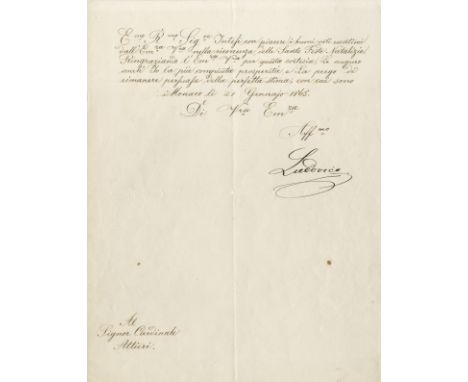 E.mo R.mo Sig.re Intesi con piacere i buoni voti esternati
dall'Em.za V.ra nella ricorrenza delle Sante Feste Natalizie
Ringraziando l'Em.za V.ra per questa cortesia, Le auguro
anch'Io la più compiuta prosperità e La prego di
rimanere persuasa della perfetta stima, con cui sono
Monaco li 21 Gennajo 1865.
Di V.ra Em.za
Aff.mo
Ludovico
Al
Signor Cardinale
Altieri.